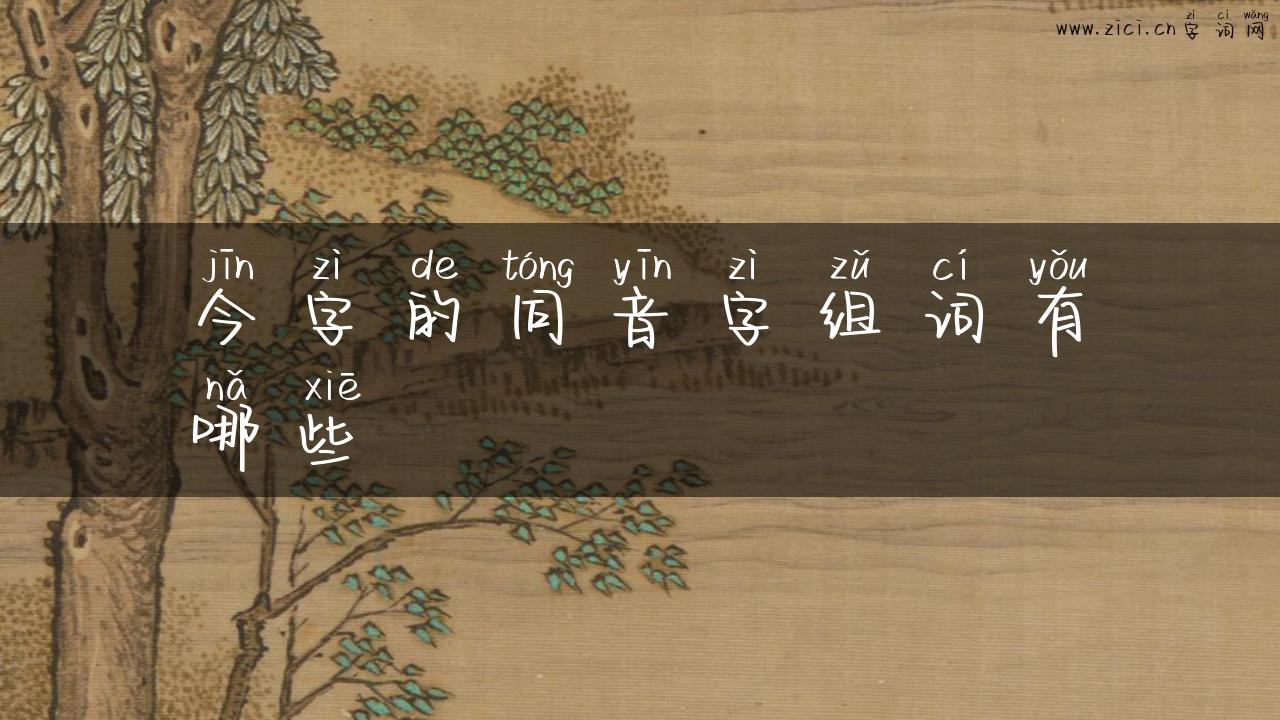 zì cí wǎng
www.zici.cn字词网
jīn zì de tóng yīn zì zǔ cí yǒu
今字的同音字组词有
nǎ xiē
哪些